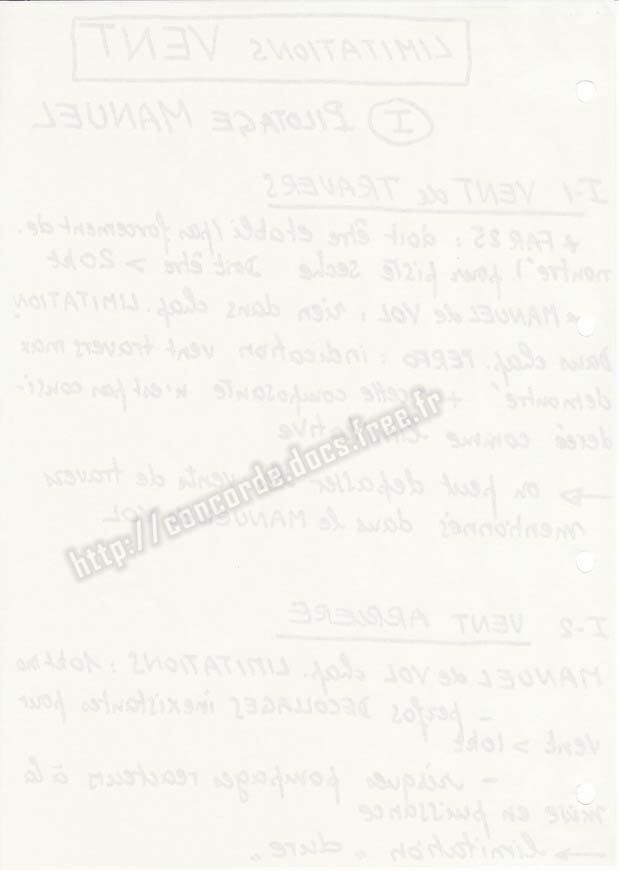 LIMITATIONS VENT
I PILOTAGE MANUEL
I-1 VENT de TRAVERS
+ FAR 25 : doit être etabli (pas forcement de-
montré) pour piste seche Doit être > 20 kt
+ MANUEL de VOL : rien dans chap. LIMITATION
Dans chap. PERFO : indication vent travers max
demontré + "cette composante n'est pas consi-
derée comme
→ on peut depasser vents de travers
mentionnés dans le MANUEL VOL
http://concorde.docs.free.fr
I-2 VENT ARRIERE
MANUEL de VOL chap. LIMITATIONS : 10kt max
- perfos DECOLLAGES inexistantes pour
vent > 10kt
- risques pompages reacteurs à la
mise en puissance
→ limitation "dure"